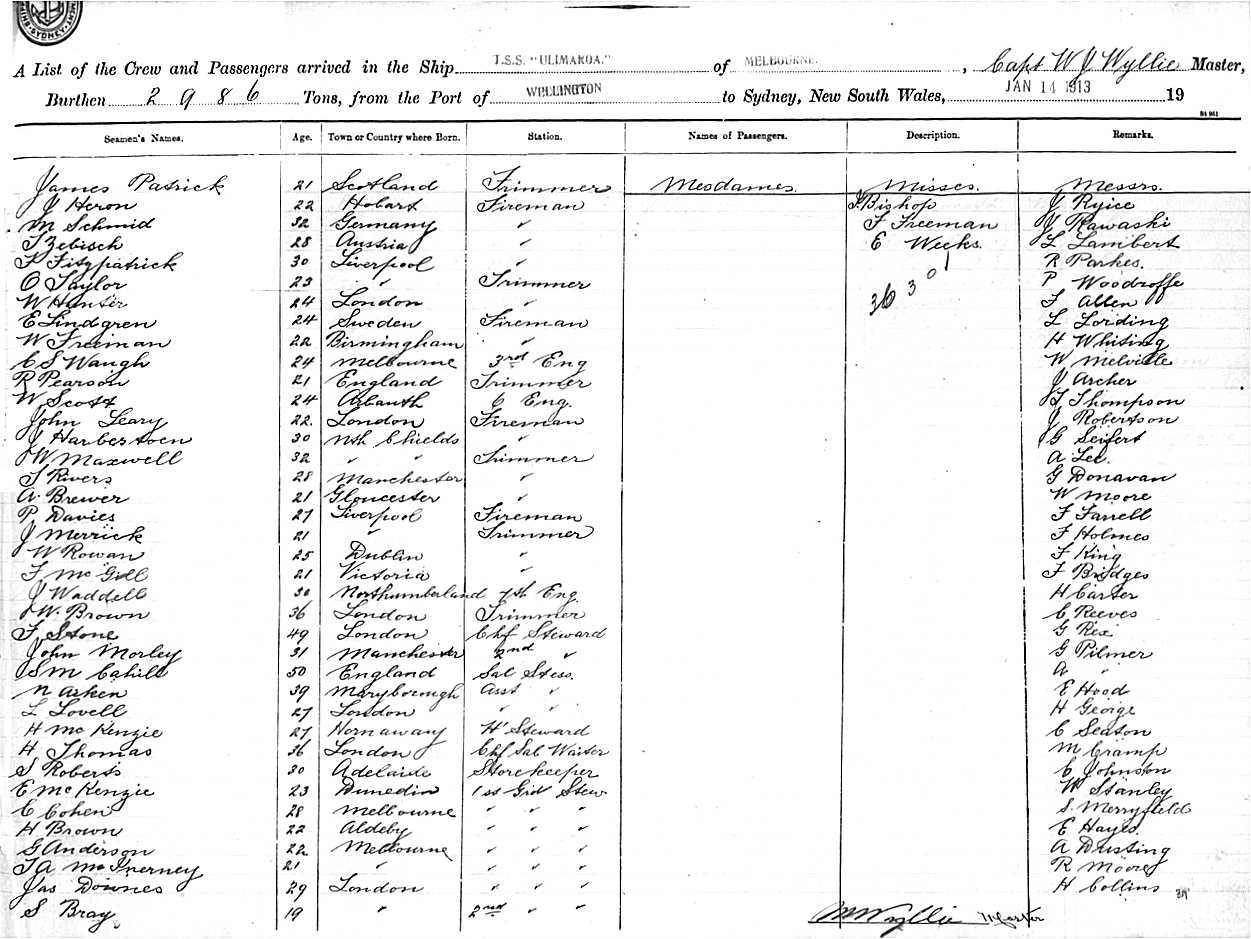 SYDNEY
A List of the Crew and Passengers arrived in the Ship T.S.S. "ULIMAROA." of MELBOURNE. , Capt W J Wyllie Master,
Burthen 2986 Tons, from the Port of WELLINGTON to Sydney, New South Wales, JAN 14 1913 19
Seamen's Names. Age. Town or Country where Born. Station. Names of Passengers. Description. Remarks.
James Patrick 21 Scotland Trimmer Mesdames. Misses. Messrs.
J Heron 22 Hobart Fireman Bishop J
M Schmid 32 Germany " F Freeman J Kawaski
Zebisch 28 Austria " E Weeks. L Lambert
Fitzpatrick 30 Liverpool " R Parkes.
O Taylor 23 " Trimmer 36 3 0 P Woodroffe
W Hunter 24 London " Allen
E Lindgren 24 Sweden Fireman L Lording
W Freeman 22 Birmingham " H Whiting
C S Waugh 24 Melbourne 3rd Eng W Melville
R Pearson 21 England Trimmer J Archer
W Scott 24 6 Eng. Thompson
John Leary 22. London Fireman J Robertson
J 30 Nth Shields " G Seifert
W Maxwell 32 " " Trimmer A Lee.
Rivers 28 Manchester " G Donavan
A. Brewer 21 Gloucester " W Moore
P Davies 27 Liverpool Fireman F Farrell
J Merrick 21 " Trimmer F Holmes
W Rowan 25 Dublin " F King
F McGill 21 Victoria " F Bridges
J Waddell 30 Northumberland 7th Eng. H Carter
W. Brown 36 London Trimmer C Reeves
F Stone 49 London Chf Steward G Rex
John Morley 31 Manchester 2nd " G Pilmer
S M Cahill 50 England Sal Stess. A "
N Aiken 39 Maryborough Asst " E Hood
L Lovell 27 London " " H George
H McKenzie 27 H Steward C Seaton
H Thomas 36 London Chf Sal Waiter M Cramp
S Roberts 30 Adelaide Storekeeper C Johnston
E McKenzie 23 Dunedin 1ss Grd Stew W Stanley
C Cohen 28 Melbourne " " " S. Merryfield
H Brown 22 Aldeby " " " E Hayes.
G Anderson 22 Melbourne " " " A Dusting
McInerney 21 " " " " R Moore
Jas Downes 29 London " " " H Collins 39
S Bray 19 " 2nd " "
Wyllie Master